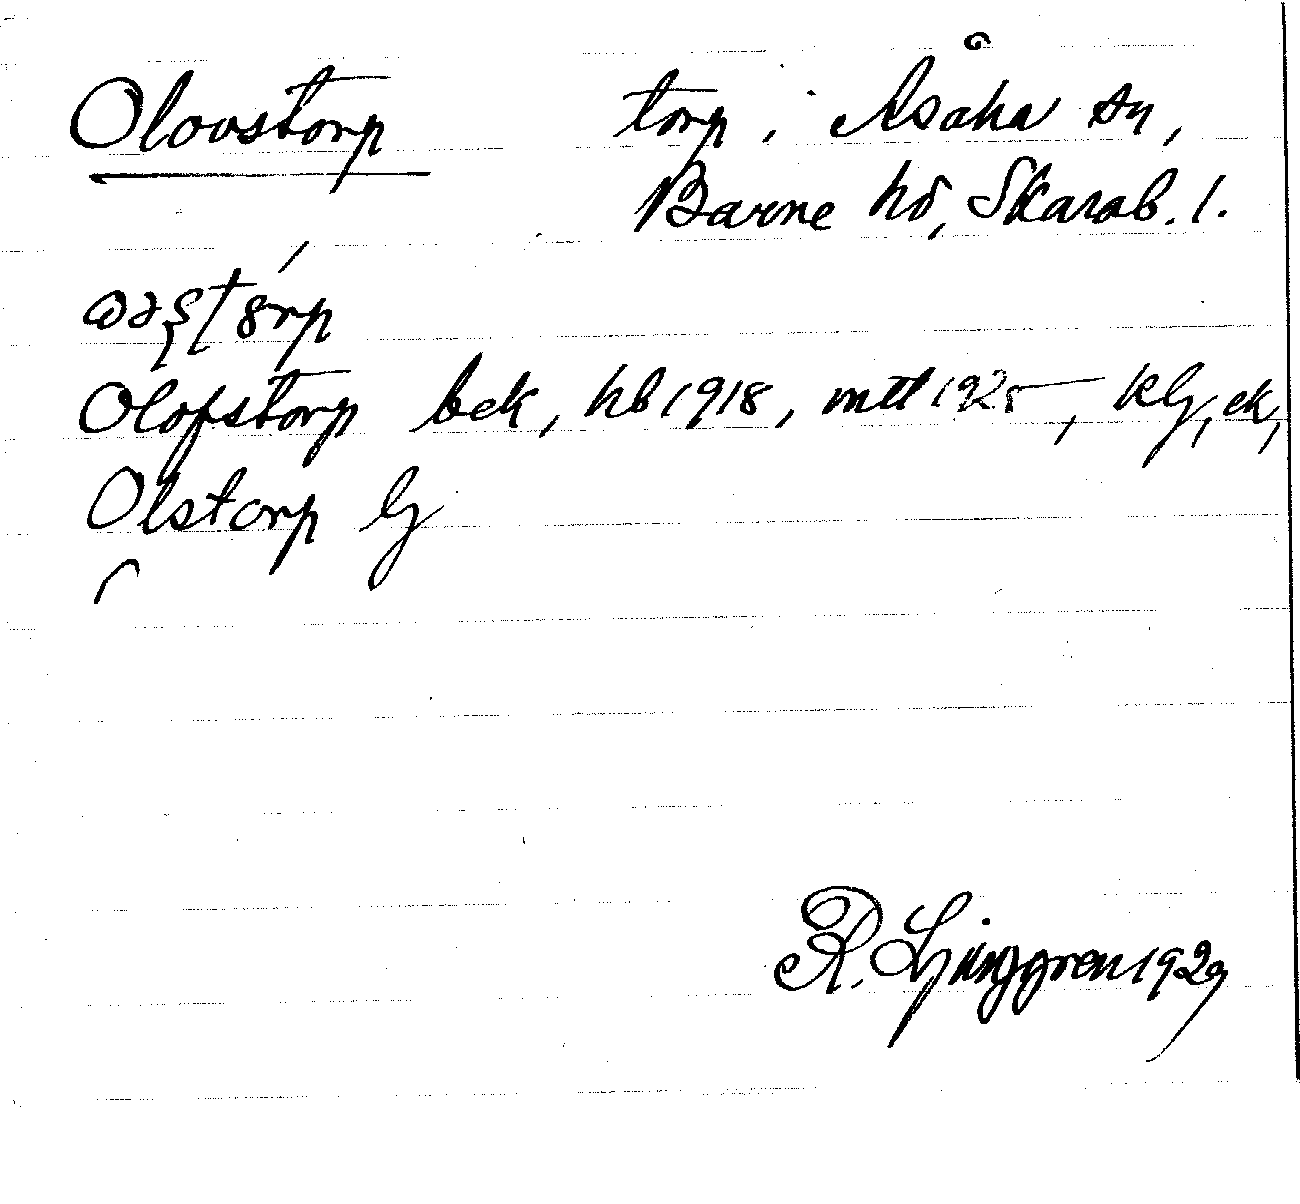 Olovstorp torp i Åsaka sn,
Barne hd, Skarab. l.
Olofstorp bek, hb 1918, mtl 1925, kG, ek,
Olstorp G
R. Ljunggren 1929